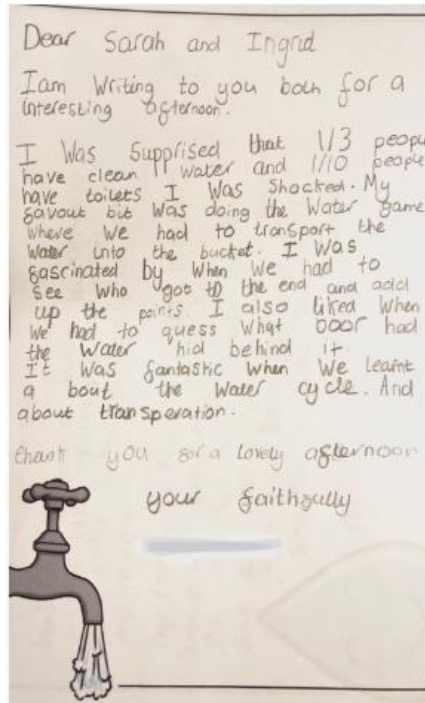 Dear Sarah and Ingrid
I am Writing to you both for a
interesting afternoon.
I Was Supprised that 1/3 people
have clean water and 1/10 people
have toilets I Was Shocked. My
favout bit Was doing the Water game
where We had to transport the
Water into the bucket. I Was
fascinated by When We had to
see Who got to the end and add
up the points. I also liked When
We had to guess What Door had
the Water hid behind it.
It Was fantastic When We learnt
a bout the Water cycle. And
about transperation.
thank you for a lovely afternoon
your faithfully